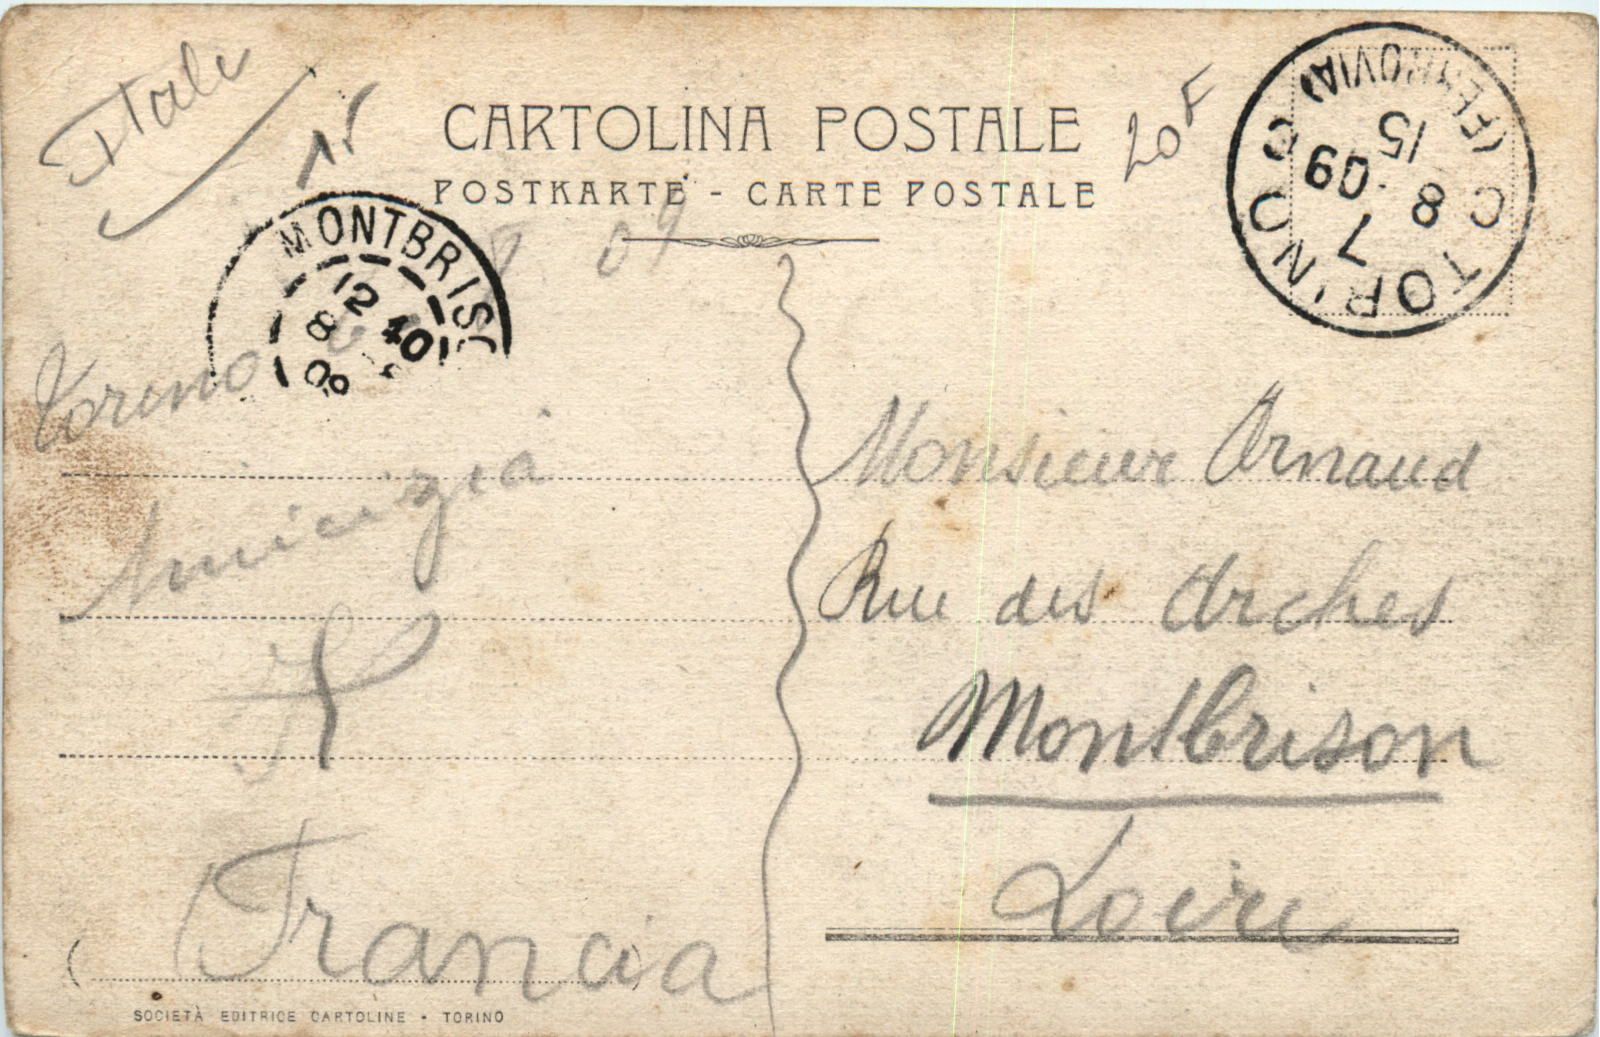 Italie
CARTOLINA POSTALE
POSTKARTE - CARTE POSTALE
20F
TORINO
(FERROVIA)
15
8 09
7
MONTBRISO
12 40
8
09
Torino
8 09
Amicizia
Monsieur Arnaud
Rue des Arches
Montbrison
Loire
Francia
SOCIETÀ EDITRICE CARTOLINE - TORINO